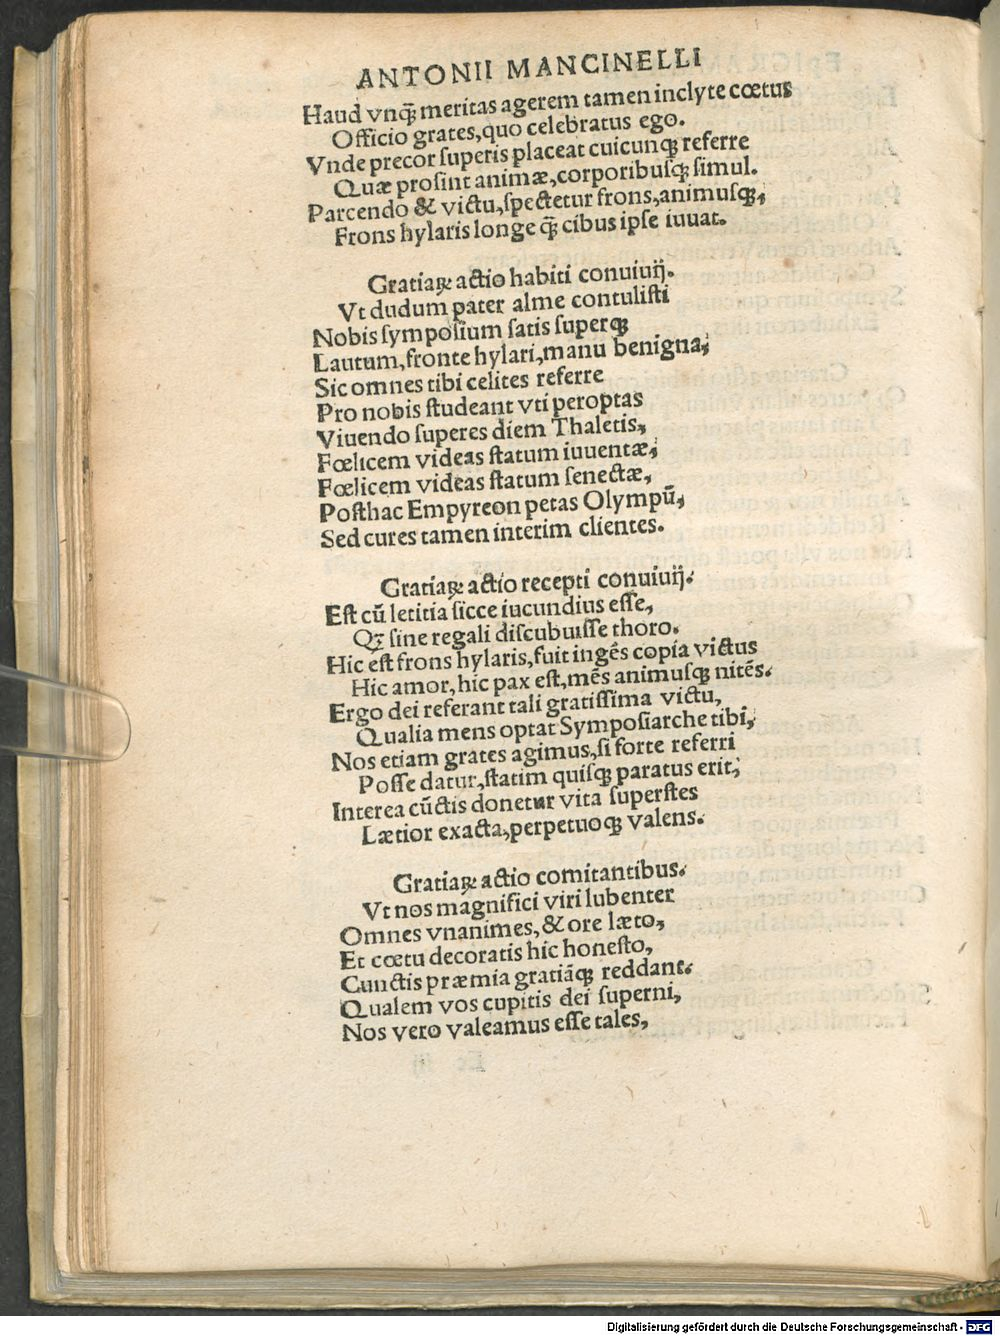 ANTONII MANCINELLI
Haud vnq̃ meritas agerem tamen inclyte cœtus
Officio grates, quo celebratus ego.
Vnde precor superis placeat cuicunqꝫ referre
Quæ prosint animæ, corporibusqꝫ simul.
Parcendo & victu, spectetur frons, animusqꝫ,
Frons hylaris longe q̃ cibus ipse iuuat.
Gratiaꝝ actio habiti conuiuij.
Vt dudum pater alme contulisti
Nobis symposium satis superqꝫ
Lautum, fronte hylari, manu benigna,
Sic omnes tibi celites referre
Pro nobis studeant vti peroptas
Viuendo superes diem Thaletis,
Fœlicem videas statum iuuentæ,
Fœlicem videas statum senectæ,
Posthac Empyreon petas Olympũ,
Sed cures tamen interim clientes.
Gratiaꝝ actio recepti conuiuij.
Est cũ letitia sicce iucundius esse,
Qꝫ sine regali discubuisse thoro.
Hic est frons hylaris, fuit ingẽs copia victus
Hic amor, hic pax est, mẽs animusqꝫ nitẽs.
Ergo dei referant tali gratissima victu,
Qualia mens optat Symposiarche tibi,
Nos etiam grates agimus, si forte referri
Posse datur, statim quisqꝫ paratus erit,
Interea cũctis donetur vita superstes
Lætior exacta, perpetuoqꝫ valens.
Gratiaꝝ actio comitantibus.
Vt nos magnifici viri lubenter
Omnes vnanimes, & ore læto,
Et cœtu decoratis hic honesto,
Cunctis præmia gratiãqꝫ reddant.
Qualem vos cupitis dei superni,
Nos vero valeamus esse tales,
Digitalisierung gefördert durch die Deutsche Forschungsgemeinschaft - DFG